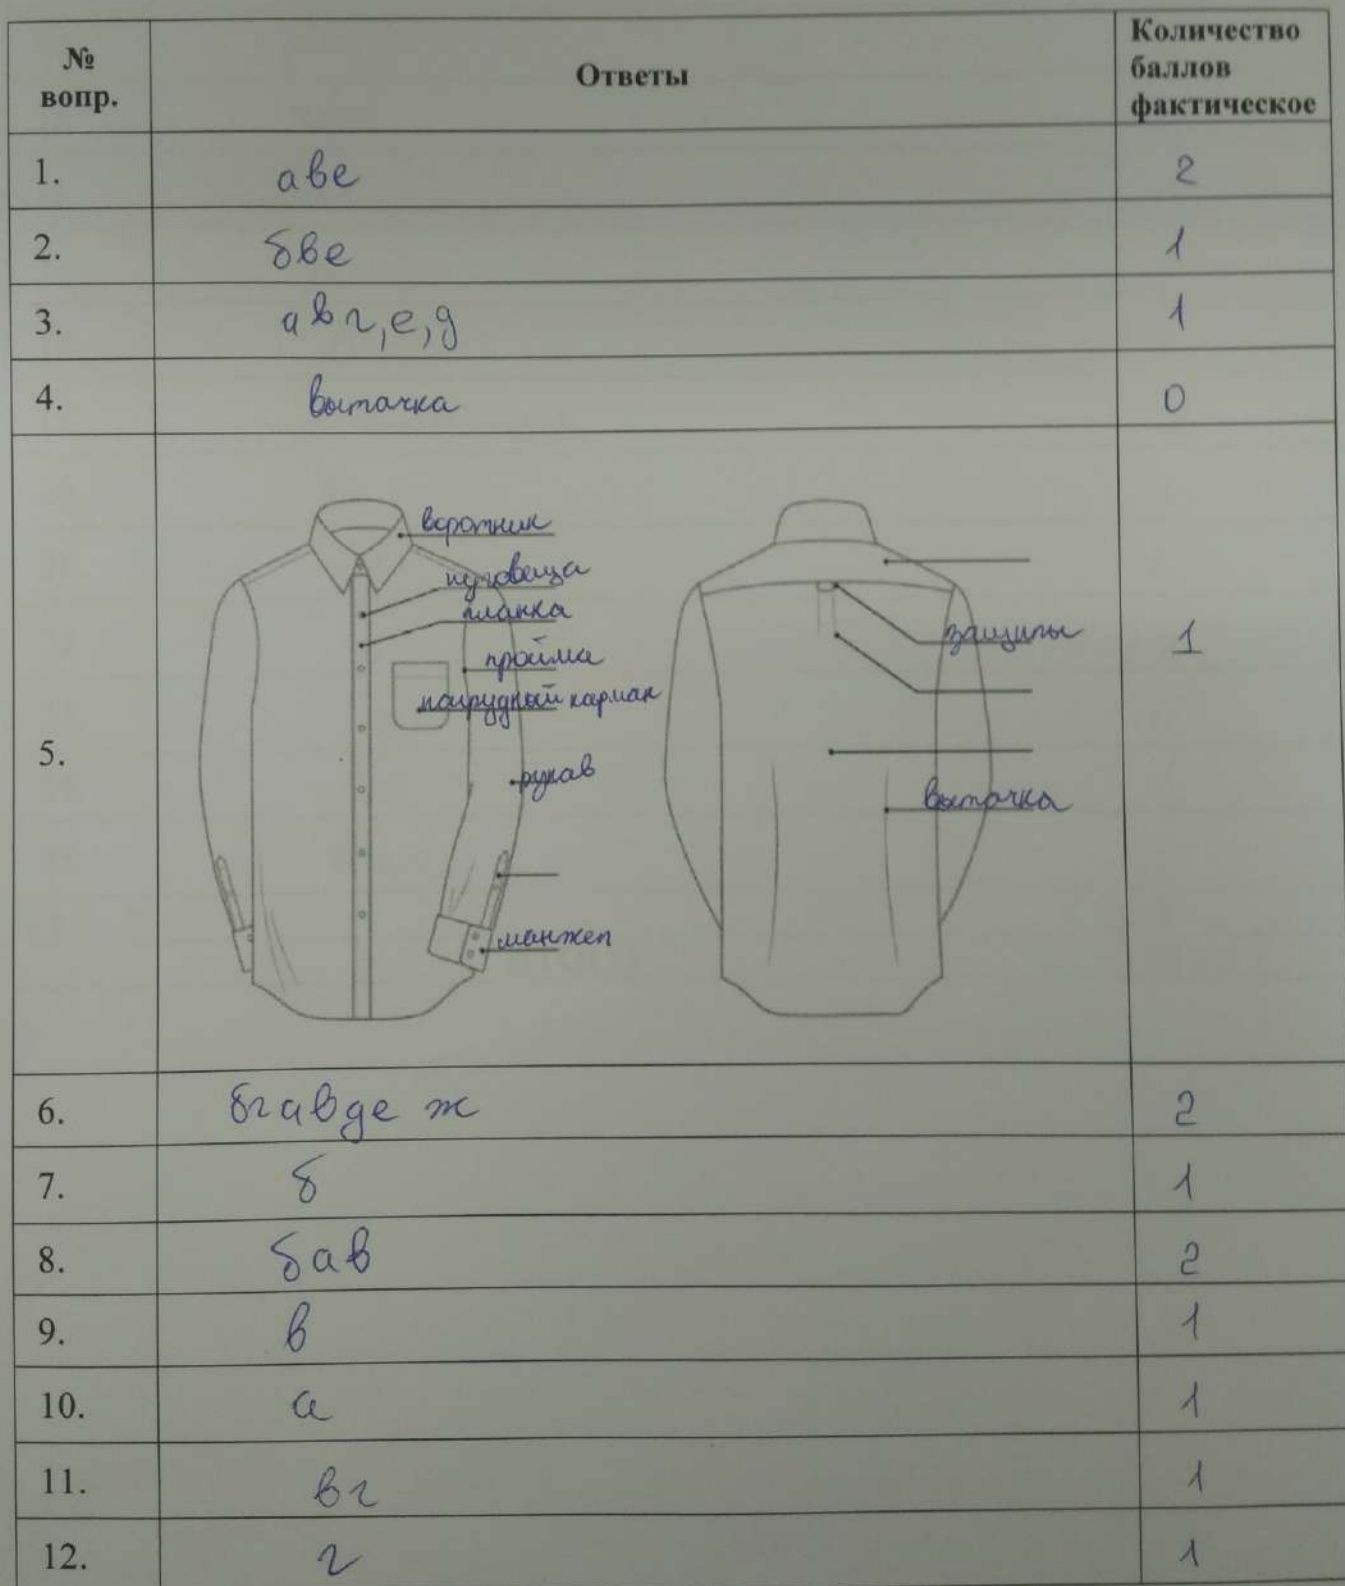 № вопр.
Ответы
Количество баллов фактическое
1. аве 2
2. бве 1
3. авг,е,д 1
4. выточка 0
5. 1
воротник
пуговеца
планка
пройма
нагрудный карман
рукав
манжет
защипы
выточка
6. бгавде ж 2
7. б 1
8. бав 2
9. в 1
10. а 1
11. вг 1
12. г 1